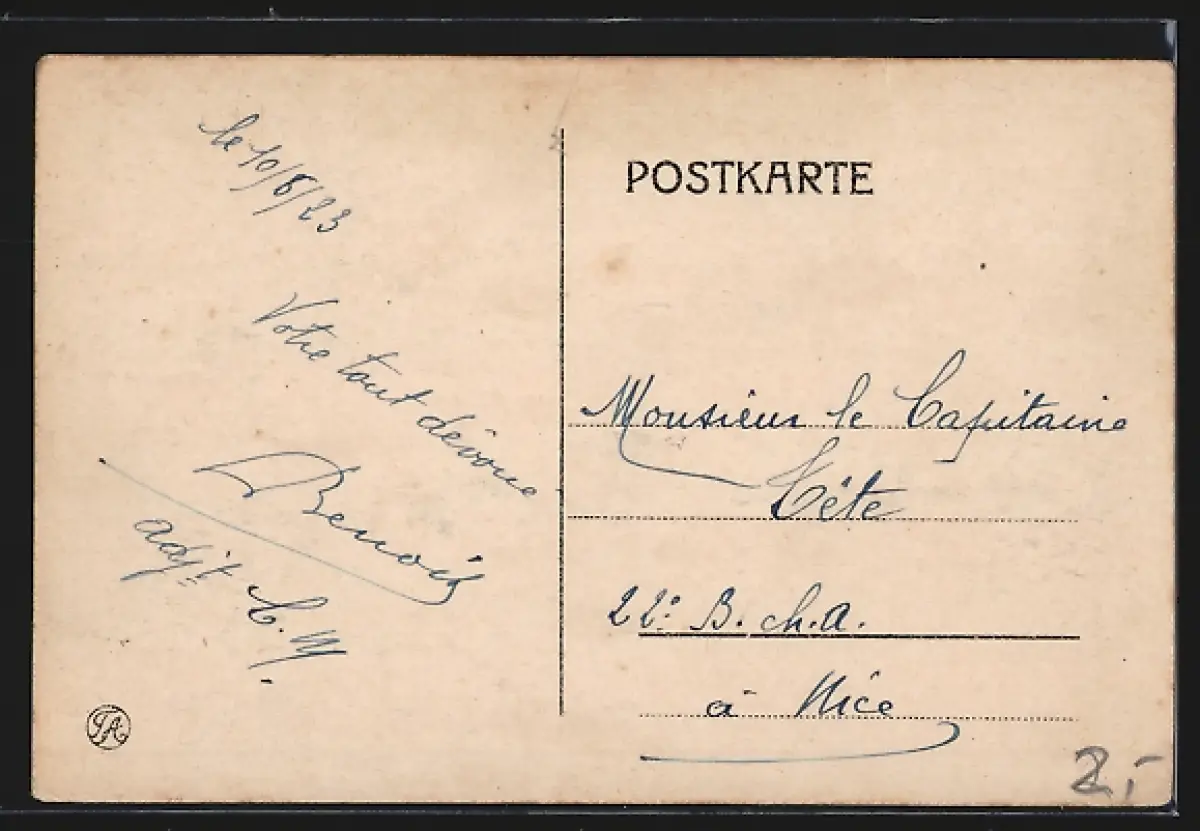 le 10/8/23
Votre tout dévoué
Benoit
adjt C. M.
POSTKARTE
Monsieur le Capitaine
Tête
22e B. ch. a.
à Nice
2,-